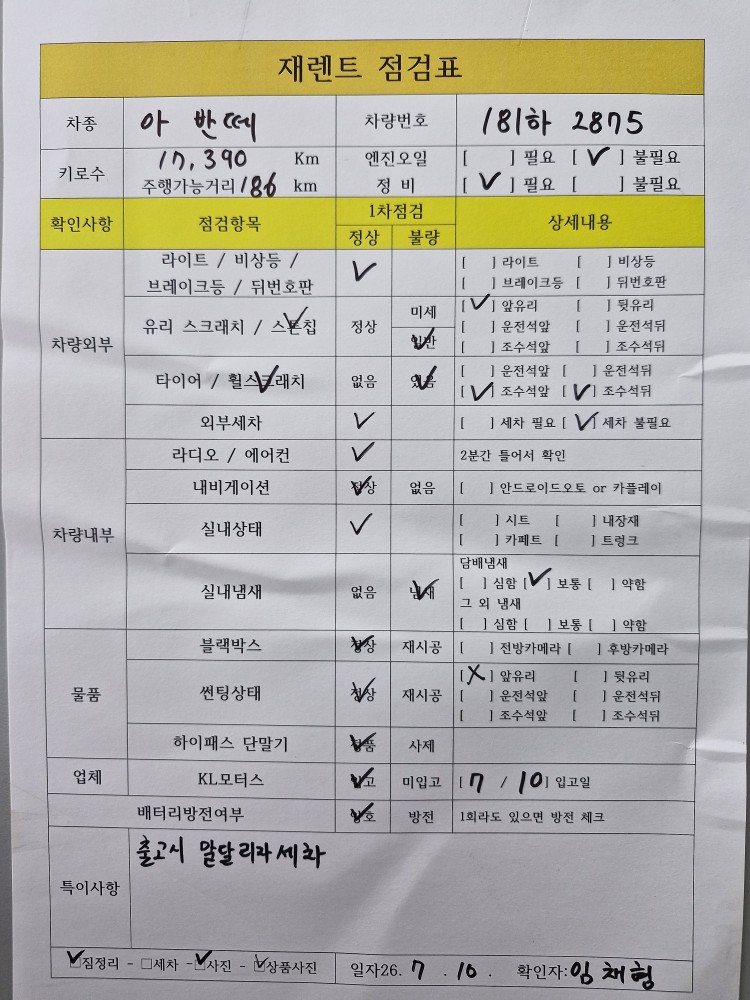 재렌트 점검표
차종 아반떼 차량번호 181하 2875
키로수 17,390 Km 엔진오일 [ ] 필요 [✓] 불필요
주행가능거리 186 km 정 비 [✓] 필요 [ ] 불필요
확인사항 점검항목 1차점검 상세내용
정상 불량
차량외부
라이트 / 비상등 / ✓ [ ] 라이트 [ ] 비상등
브레이크등 / 뒤번호판 [ ] 브레이크등 [ ] 뒤번호판
유리 스크래치 / 스톤칩 정상 미세 [✓] 앞유리 [ ] 뒷유리
일반 [ ] 운전석앞 [ ] 운전석뒤
[ ] 조수석앞 [ ] 조수석뒤
타이어 / 휠스크래치 없음 있음 [ ] 운전석앞 [ ] 운전석뒤
[✓] 조수석앞 [✓] 조수석뒤
외부세차 ✓ [ ] 세차 필요 [✓] 세차 불필요
차량내부
라디오 / 에어컨 ✓ 2분간 틀어서 확인
내비게이션 정상 없음 [ ] 안드로이드오토 or 카플레이
실내상태 ✓ [ ] 시트 [ ] 내장재
[ ] 카페트 [ ] 트렁크
실내냄새 없음 냄새 담배냄새
[ ] 심함 [✓] 보통 [ ] 약함
그 외 냄새
[ ] 심함 [ ] 보통 [ ] 약함
물품
블랙박스 정상 재시공 [ ] 전방카메라 [ ] 후방카메라
썬팅상태 정상 재시공 [X] 앞유리 [ ] 뒷유리
[ ] 운전석앞 [ ] 운전석뒤
[ ] 조수석앞 [ ] 조수석뒤
하이패스 단말기 정품 사제
업체 KL모터스 입고 미입고 [7 / 10] 입고일
배터리방전여부 양호 방전 1회라도 있으면 방전 체크
특이사항 출고시 말달리자세차
☑짐정리 - □세차 - ☑사진 - ☑상품사진 일자26. 7 . 10 . 확인자:임채형